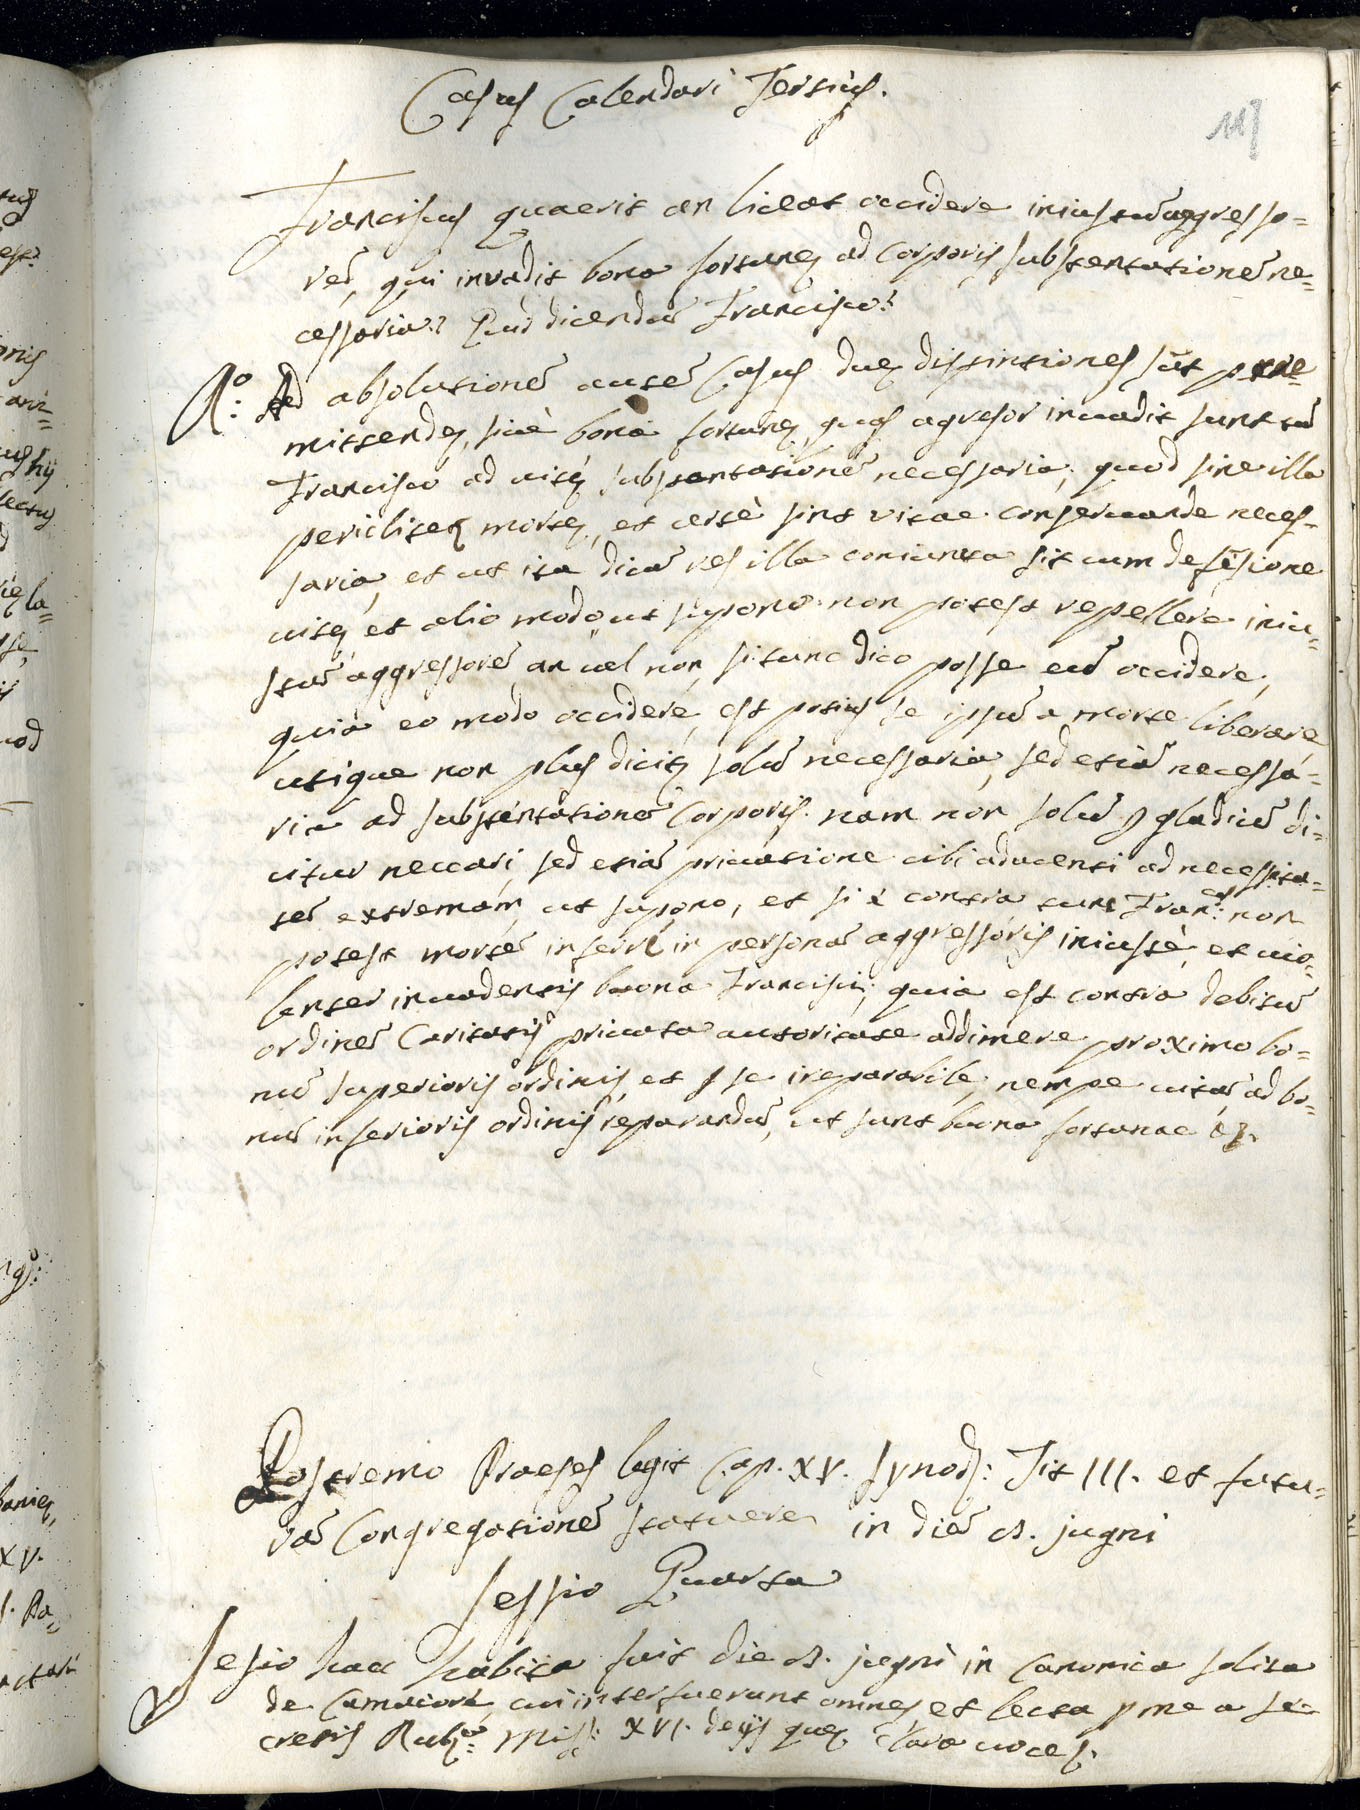 Casus Calendari Tertius.
117
Franciscus quaerit an liceat occidere iniustũ aggresso=
rẽ, qui invadit bona fortunę ad Corporis substentationẽ ne=
cessaria? Quid dicendũ Francisco?
R.º Ad absolutionẽ autẽ Casus duę distintiones sũt prae=
mittendę, siue bona fortunę, quę agresor inuadit sunt
Francisco ad uitę substentationẽ necessaria, quod sine illa
periclitetur mortę, et certè sint vitae conseruande neces=
saria, et ut ita dicã res illa coniunta sit cum defẽsione
uitę et alio modo ut supono non potest repellere iniu=
stũ aggressorẽ an uel non, si tunc dico posse eũ occidere,
quia eo modo occidere, est potius se ipsũ a morte liberare
utique non plus dicitę solũ necessaria, sed etiã necessa=
ria ad substentationẽ Corporis. nam non solũ p gladiũ di=
citur neccari, sed etiã priuatione cibi aducenti ad necessita=
tẽ extremam, ut supono, et si è contra tunc Fran:cus non
potest mortẽ inferri in personã aggressoris iniustè, et uio=
lenter inuadentis buona Francisci; quia est contra debitũ
ordinẽ Caritatis priuata autoritate addimere proximo bo=
nũ superioris ordinis, et p se ireparabile, nempe uitã, ad bo=
nũ inferioris ordinis reparandũ, ut sunt buona fortunae &.
Postremo Praeses legit Cap. XV. Synod: Tit III. et futu=
rã Congregationẽ statuere in diẽ 03. jugni
Sessio Quarta
Sesio haec habita fuit die 03. jugni in Canonica solita
de Camaiore, cui interfuerunt omnes et lecta p me a se=
cretis Rub:ca Miss: XVI. de ijs quę Clara uoce &.